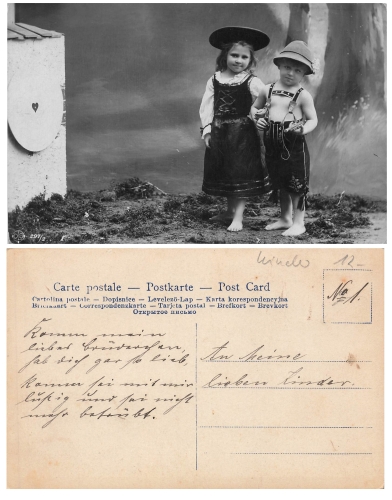 Kinder 12.-
Carte postale — Postkarte — Post Card
Cartolina postale — Dopisnice — Levelező-Lap — Karta korespondencyjna
Briefkaart — Correspondenzkarte — Tarjeta postal — Brefkort — Brevkort
Открытое письмо
No 1.
Komm mein
liebes Brüderchen,
hab dich gar so lieb,
Komm sei mit mir
lustig und sei nicht
mehr betrübt.
An Meine
lieben Kinder.